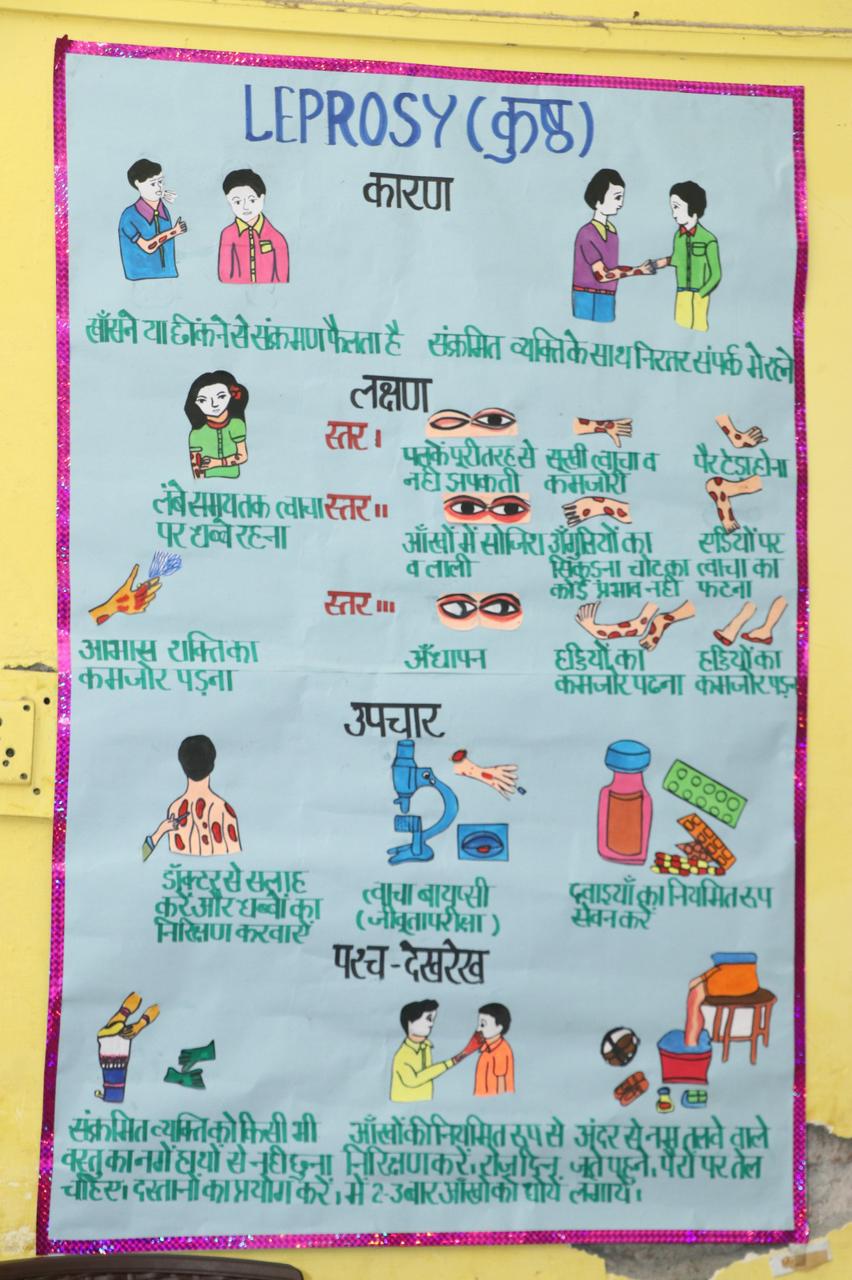 LEPROSY (कुष्ठ)
कारण
खाँसने या छींकने से संक्रमण फैलता है
संक्रमित व्यक्ति के साथ निरतर संपर्क मे रहने
लक्षण
लंबे समय तक त्वाचा
पर धब्बे रहना
आभास शक्ति का
कमजोर पड़ना
स्तर I
पलकें पूरी तरह से
नही झपकती
सूखी त्वाचा व
कमजोरी
पैर टेडा होना
स्तर II
आँखों में सोजिश
व लाली
अँगुलियों का
सिकुडना चोट का
कोई प्रभाव नही
एडियों पर
त्वाचा का
फटना
स्तर III
अँधापन
हडियों का
कमजोर पढना
हडियों का
कमजोर पड़ना
उपचार
डॉक्टर से सलाह
करें और धब्बों का
निरिक्षण करवाएं
त्वाचा बायप्सी
(जीवूतापरीक्षा)
दवाइयाँ का नियमित रूप
सेवन करें
पश्च - देखरेख
संक्रमित व्यक्ति को किसी भी
वस्तु का नमें हाथों से नही छुना
चाहिए। दस्तानों का प्रयोग करें।
आँखों की नियमित रूप से
निरिक्षण करें। रोजा दिन
में 2-3 बार आँखो को धोयें
अंदर से नम्र तलवे वाले
जूते पहने। पैरों पर तेल
लगायें।